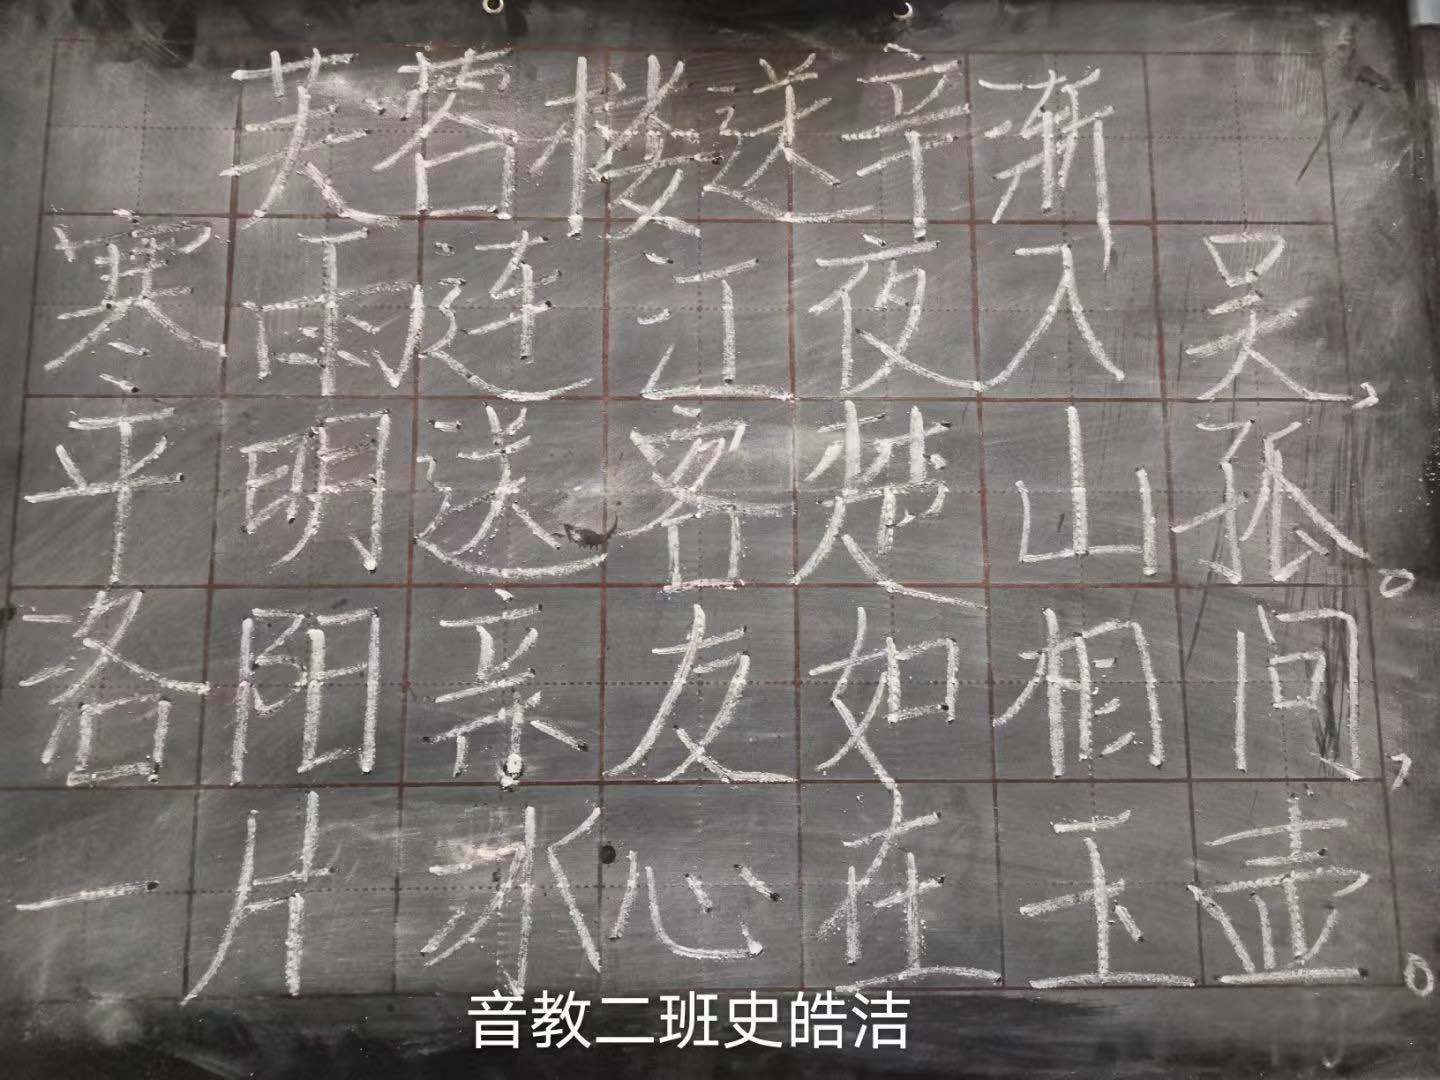 芙若楼送辛渐
寒雨连江夜入吴，
平明送客楚山孤。
洛阳亲友如相问，
一片冰心在玉壶。
音教二班史皓洁